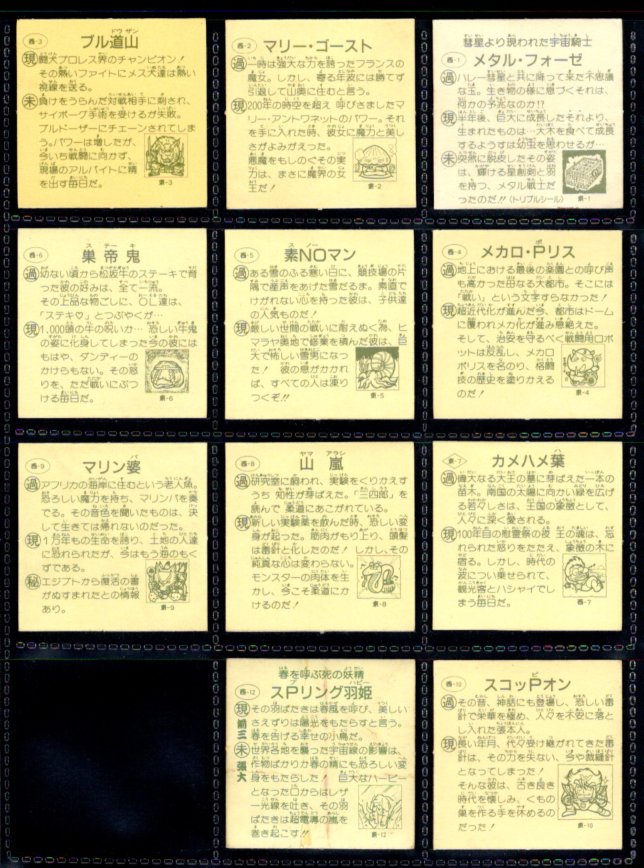 西-3
ブル道山
ドウザン
現 闘犬プロレス界のチャンピオン!
その熱いファイトにメス犬達は熱い
視線を送る。
未 負けをうらんだ対戦相手に刺され、
サイボーグ手術を受けるが失敗。
ブルドーザーにチェーンされてしま
う。パワーは増したが、
今いち戦闘に向かず、
現場のアルバイトに精
を出す毎日だ。
東-3
西-2
マリー・ゴースト
過 一時は強大な力を誇ったフランスの
魔女。しかし、寄る年波には勝てず
引退して山奥に住むと言う。
現 200年の時空を超え 呼びさましたマ
リー・アントワネットのパワー。それ
を手に入れた時、彼女に魔力と美し
さがよみがえった。
悪魔をもしのぐその実
力は、まさに魔界の女
王だ!
東-2
彗星より現われた宇宙騎士
西-1
メタル・フォーゼ
過 ハレー彗星と共に降って来た不思議
な玉。生き物の様に息づくそれは、
何かの予兆なのか!?
現 半年後、巨大に成長したそれより、
生まれたものは…大木を食べて成長
するようすは幼虫を思わせるが…
未 突然に脱皮したその姿
は、輝ける星創剣と羽
を持つ、メタル戦士だ
ったのだ!!(トリプルシール)
東-1
西-6
巣帝鬼
ステーキ
過 幼ない頃から松阪牛のステーキで育
った彼の好みは、全て一流。
その上品な物ごしに、OL達は、
「ステキ♡」とつぶやくが…
現 1,000頭の牛の呪いか… 恐ろしい牛鬼
の姿に化身してしまった今の彼には
もはや、ダンディーの
かけらもない。その怒
りを、ただ戦いにぶつ
ける毎日だ。
東-6
西-5
素NOマン
スノー
過 ある雪のふる寒い日に、競技場の片
隅で産声をあげた雪だるま。素直で
けがれない心を持った彼は、子供達
の人気ものだ!
現 厳しい世間の戦いに耐えぬく為、ヒ
マラヤ奥地で修業を積んだ彼は、巨
大で怖しい雪男になっ
た! 彼の息がかかれ
ば、すべての人は凍り
つくぞ!!
東-5
西-4
メカロ・Pリス
ポ
過 地上における最後の楽園との呼び声
も高かった母なる大都市。そこには
「戦い」という文字すらなかった!
現 超近代化が進んだ今、都市はドーム
に覆われメカ化が進み息絶えた。
そして、治安を守るべく戦闘用ロボ
ットは反乱し、メカロ
ポリスを名のり、格闘
技の歴史を塗りかえる
のだ!
東-4
西-9
マリン婆
バ
過 アフリカの海岸に住むという老人魚。
恐ろしい魔力を持ち、マリンバを奏
でる。その音色を聞いたものは、決
して生きては帰れないのだった。
現 1万年もの生命を誇り、土地の人達
に恐れられたが、今はもう海のもく
ずである。
秘 エジプトから復活の書
がぬすまれたとの情報
あり。
東-9
西-8
山嵐
ヤマアラシ
過 研究室に飼われ、実験をくりかえす
うち 知性が芽ばえた。「三四郎」を
読んで 柔道にあこがれている。
現 新しい実験薬を飲んだ時、恐しい変
身が起った。筋肉がもり上り、頭髪
は毒針と化したのだ! しかし、その
純真な心は変わらない。
モンスターの肉体を生
かし、今こそ柔道にか
けるのだ!
東-8
西-7
カメハメ葉
ハ
過 偉大なる大王の墓に芽ばえた一本の
苗木。南国の太陽に向い緑を広げ
る若々しさは、王国の象徴として、
人々に深く愛される。
現 100年目の慰霊祭の夜 王の魂は、忘
れられた怒りをたたえ、象徴の木に
宿る。しかし、時代の
波につい乗せられて、
観光客とハシャイでし
まう毎日だ。
東-7
春を呼ぶ死の妖精
西-12
スPリング羽姫
プ ハピー
現 その羽ばたきは春風を呼び、美しい
さえずりは陽光をもたらすと言う。
春を告げる幸せの小鳥だ。
未 世界各地を襲った宇宙線の影響は、
作物ばかりか春の精にも恐ろしい変
身をもたらした! 巨大なハーピー
となった口からはレザ
ー光線を吐き、その羽
ばたきは超電導の嵐を
巻き起こす!!
東-12
西-10
スコッPオン
ピ
過 その昔、神話にも登場し、恐しい毒
針で栄華を極め、人々を不安に落と
し入れた張本人。
現 長い年月、代々受け継がれてきた毒
針は、その力を失ない、今や裁縫針
となってしまった!
そんな彼は、古き良き
時代を懐しみ、くもの
巣を作る手を休めるの
だった!
東-10